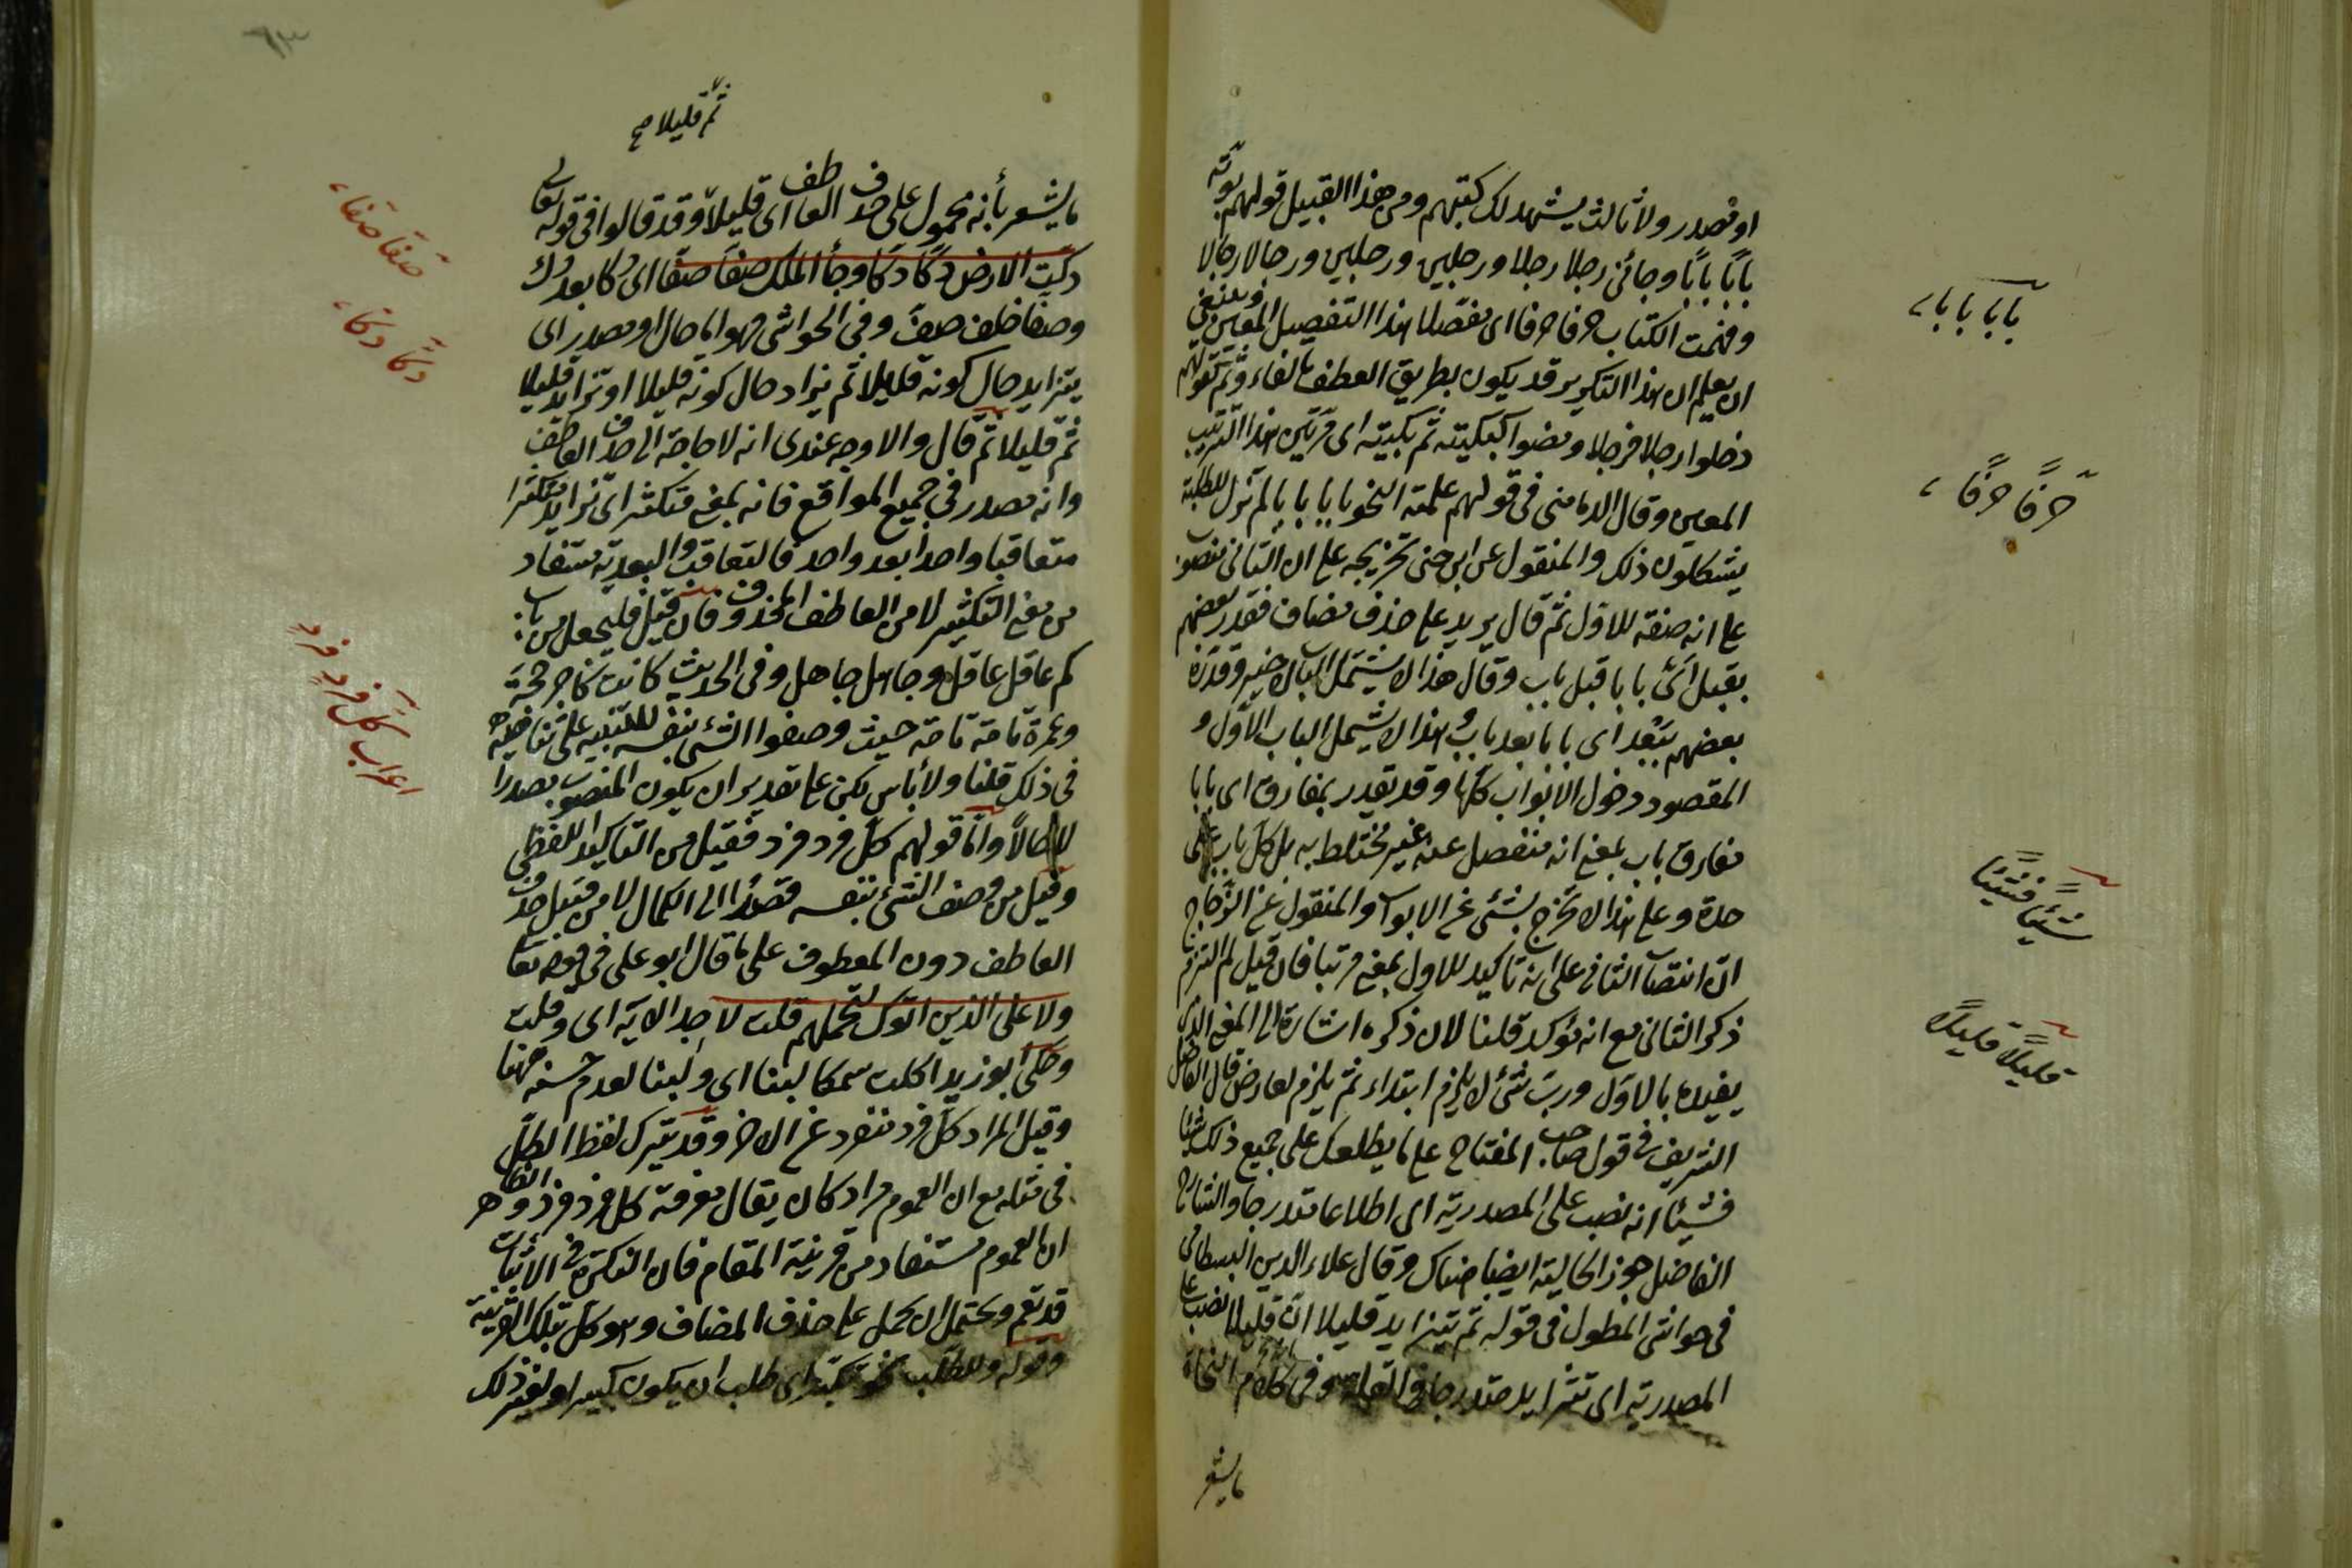 او مصدر ولا ثالث يشهد لك كتبهم ومن هذا القبيل قولهم بوبته
بابًا بابًا وجائنى رجلا رجلا ورجلين ورجلين ورجالا رجالا
وفهمت الكتاب حرفا حرفا اى مفصلا هذا التفصيل المعين وينبغى
ان يعلم ان هذا التكرير قد يكون بطريق العطف بالفاء وثم كقولهم
دخلوا رجلا فرجلا ومضوا كبكبته ثم بكبته اى مرتبين هذا الترتيب
المعين وقال الدمامينى فى قولهم علمته النحو بابا بابا لم تزل الطلبة
يشكلون ذلك والمنقول عن ابن جنى تخريجه على ان الثانى منصوب
على انه صفة للاول ثم قال يريد على حذف مضاف فقدر بعضهم
بقبل اى بابا قبل باب وقال هذا لا يشمل الباب الاخير وقدره
بعضهم ببعد اى بابا بعد باب وهذا لا يشمل الباب الاول و
المقصود دخول الابواب كلها وقد تقدر بمفارق اى بابا
مفارق باب بمعنى انه منفصل عنه غير مختلط به بل كل باب على
حدة وعلى هذا لا يخرج شئ عن الابواب والمنقول عن الزجاج
ان انتصاب الثانى على انه تاكيد للاول بمعنى مرتبا فان قيل لم التزم
ذكر الثانى مع انه مؤكد قلنا لان ذكره اشارة الى المعنى الذى
يفيده بالاول ورب شئ لا يلزم ابتداء ثم يلزم لعارض قال الفاضل
الشريف فى قول صاحب المفتاح على ما يطلعك على جميع ذلك شيئا
فشيئا انه نصب على المصدرية اى اطلاعا متدرجا والشارح
الفاضل جوز الحالية ايضا هناك وقال علاء الدين البسطامى
فى حواشى المطول فى قوله ثم يتزايد قليلا ان قليلا نصب على
المصدرية اى تتزايد متدرجا فى القلة وفى كلام النحاة
ما يشعر
بابا بابا
حرفًا حرفًا
شيئًا فشيئًا
قليلًا قليلًا
ثم قليلا صح
ما يشعر بأنه محمول على حذف العاطف اى قليلا وقد قالوا فى قوله تعالى
دكت الارض دكا دكا وجأ الملك صفا صفا اى دكا بعد دك
وصفا خلف صف وفى الحواشى هو اما حال او مصدر اى
يتزايد حال كونه قليلا ثم يزاد حال كونه قليلا او تزايد قليلا
ثم قليلا ثم قال والاوجه عندى انه لا حاجة الى حذف العاطف
وانه مصدر فى جميع المواقع فانه بمعنى متكثر اى تزايد متكثرا
متعاقبا واحدا بعد واحد فالتعاقب والبعدية مستفاد
من معنى التكثير لا من العاطف المحذوف فان قيل فليجعل من باب
كم عاقل عاقل وجاهل جاهل وفى الحديث كانت كاجر حجة
وعمرة تامة تامة حيث وصفوا الشئ بنفسه للتنبيه على تناهيه
فى ذلك قلنا ولا بأس لكن على تقدير ان يكون المنصوب مصدرا
لا حالا واما قولهم كل فرد فرد فقيل من التاكيد اللفظى
وقيل من وصف الشئ بنفسه قصدا الى الكمال لا من قبيل حذف
العاطف دون المعطوف على ما قال ابو على فى قوله تعالى
ولا على الذين اذا ما اتوك لتحملهم قلت لا اجد الآية اى وقلت
وحكى ابو زيد اكلت سمكا لبنا اى ولبنا لعدم حسنه ههنا
وقيل المراد كل فرد منفرد عن الاخر وقد يترك لفظ الكل
فى مثله مع ان العموم مراد كان يقال معرفة كل فرد فرد والظاهر
ان العموم مستفاد من قرينة المقام فان النكرة فى الاثبات
قد تعم ويحتمل ان يحمل على حذف المضاف وهو كل بتلك القرينة
وقوله وللطلب نحو تكبر اى طلب ان يكون كبيرا وليغير ذلك
صفا صفا
دكا دكا
اعراب كل فرد فرد